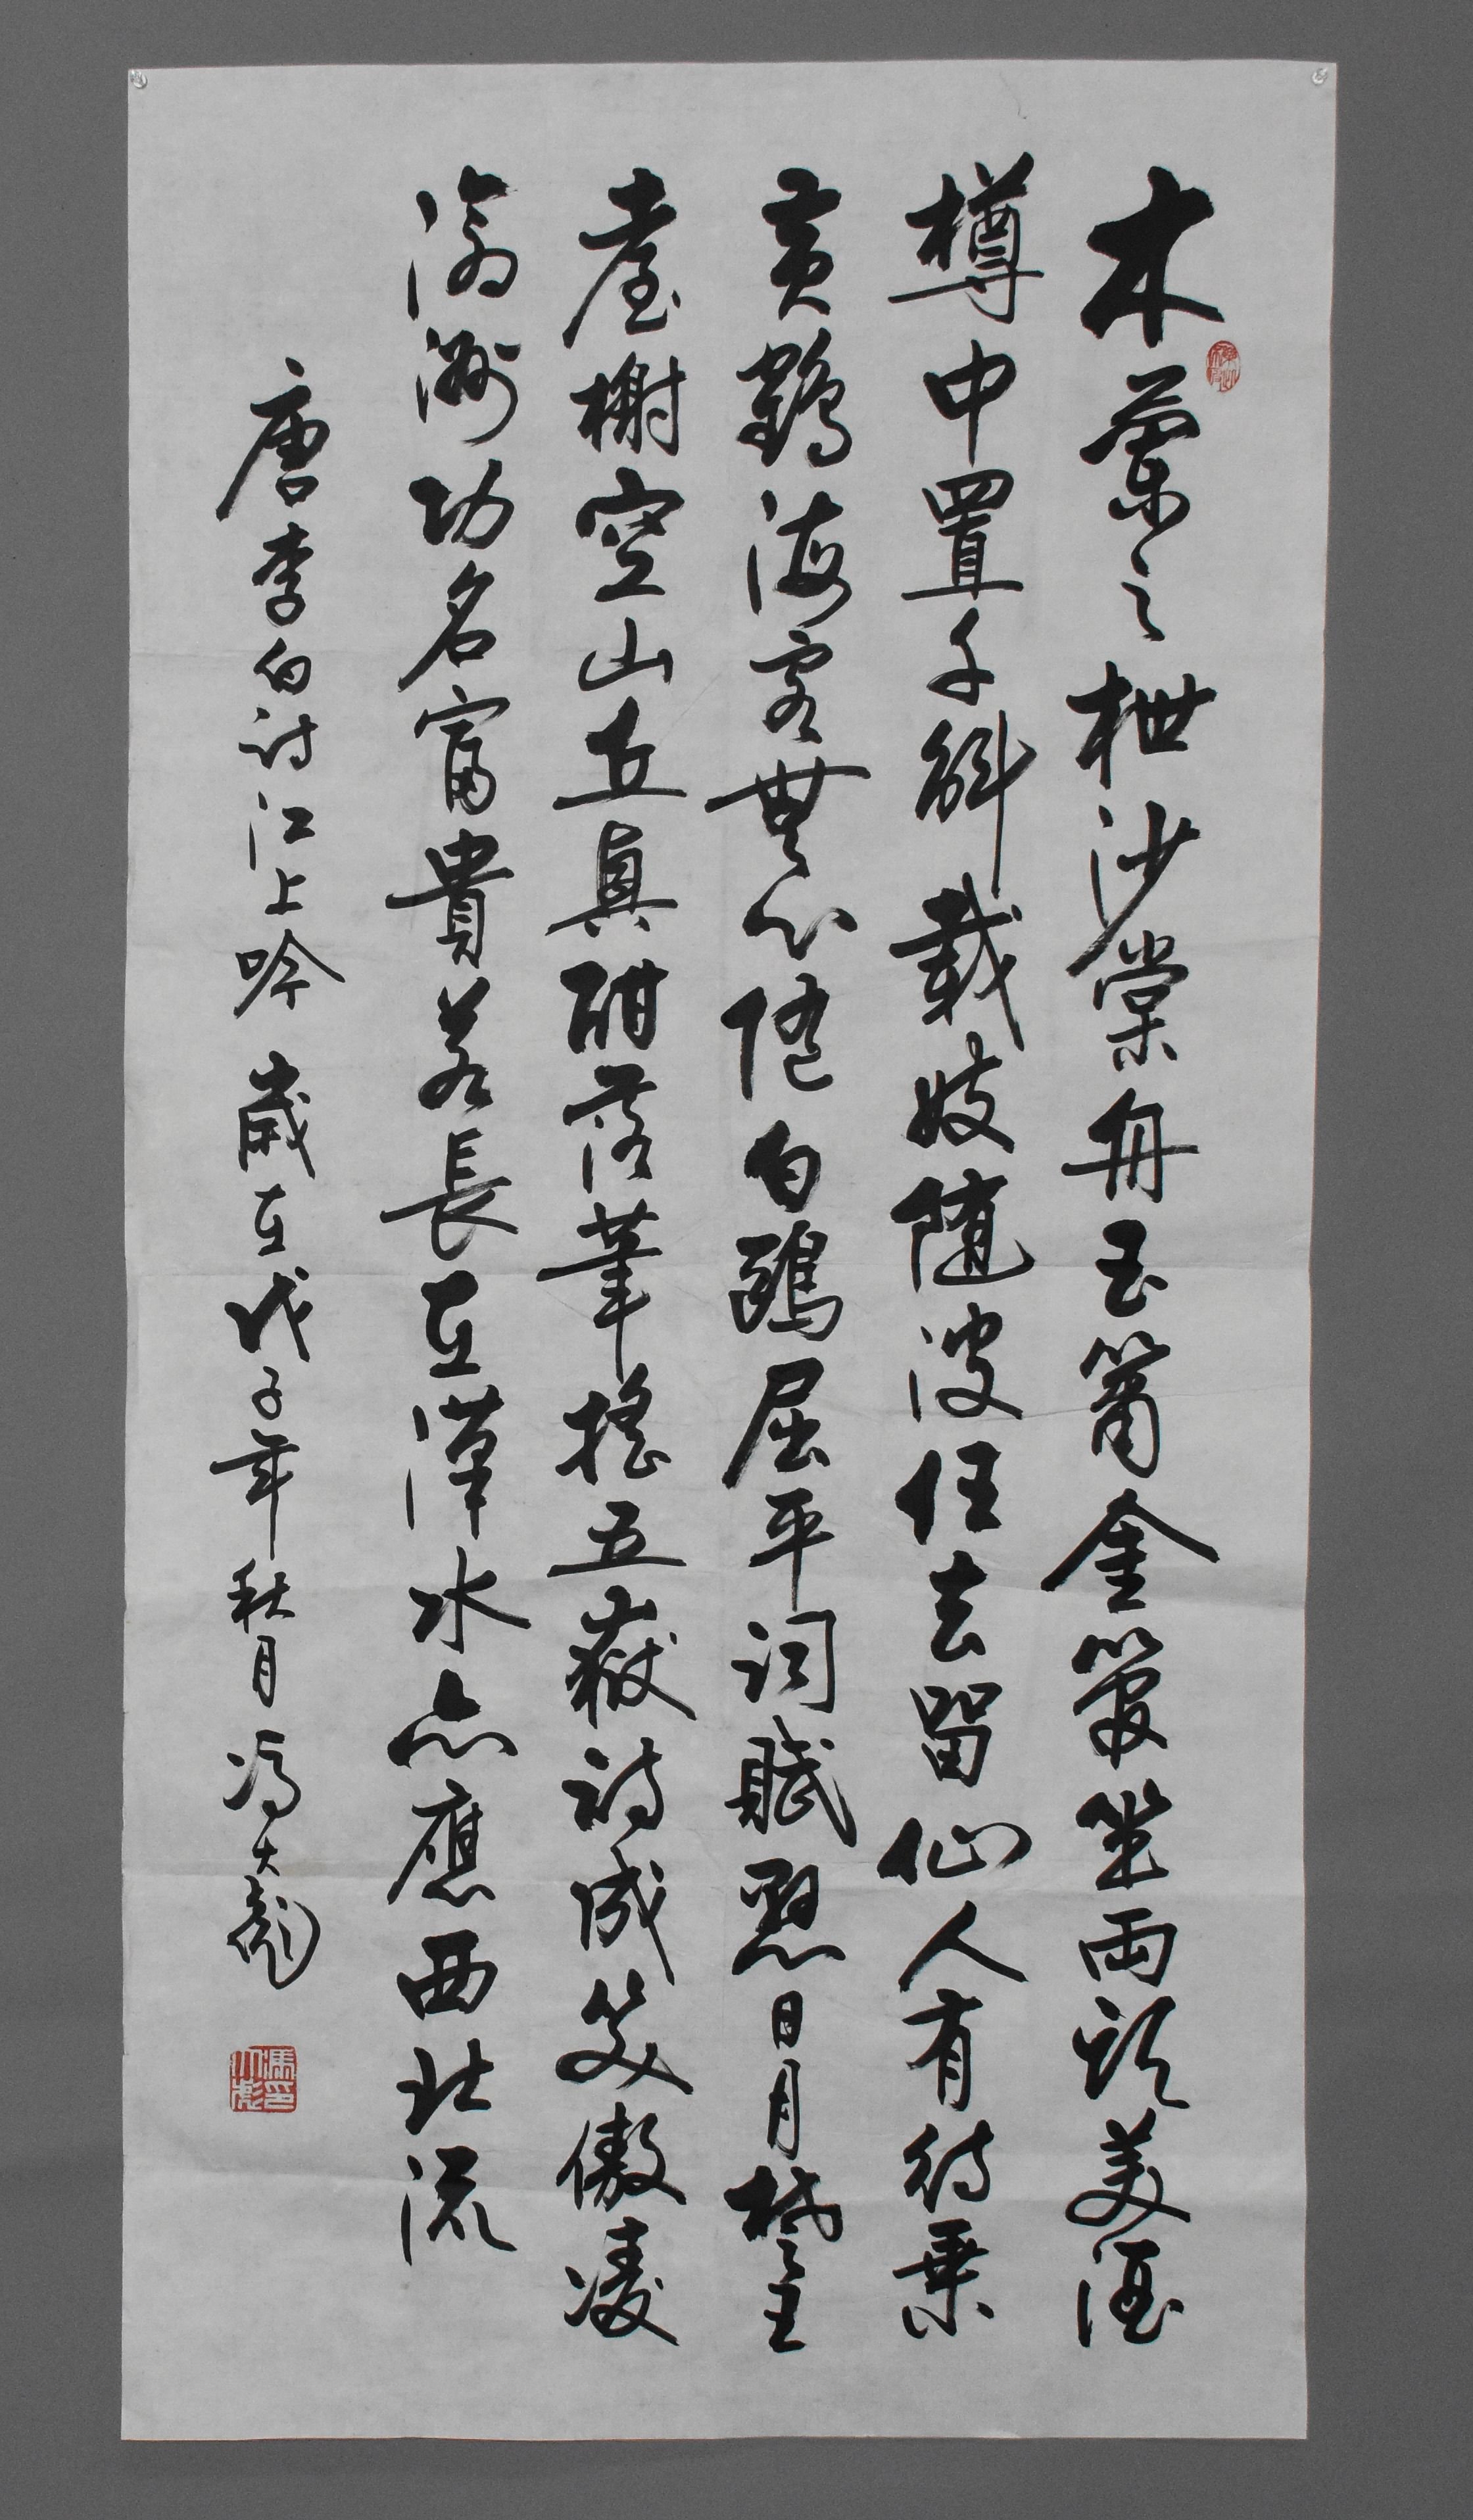 木蘭之枻沙棠舟玉簫金管坐兩頭美酒
樽中置千斛載妓隨波任去留仙人有待乘
黃鶴海客無心隨白鷗屈平詞賦懸日月楚王
臺榭空山丘真酣落筆搖五嶽詩成笑傲凌
滄洲功名富貴若長在漢水亦應西北流
唐李白詩江上吟 歲在戊子年秋月 馮大彪
馮印大彪